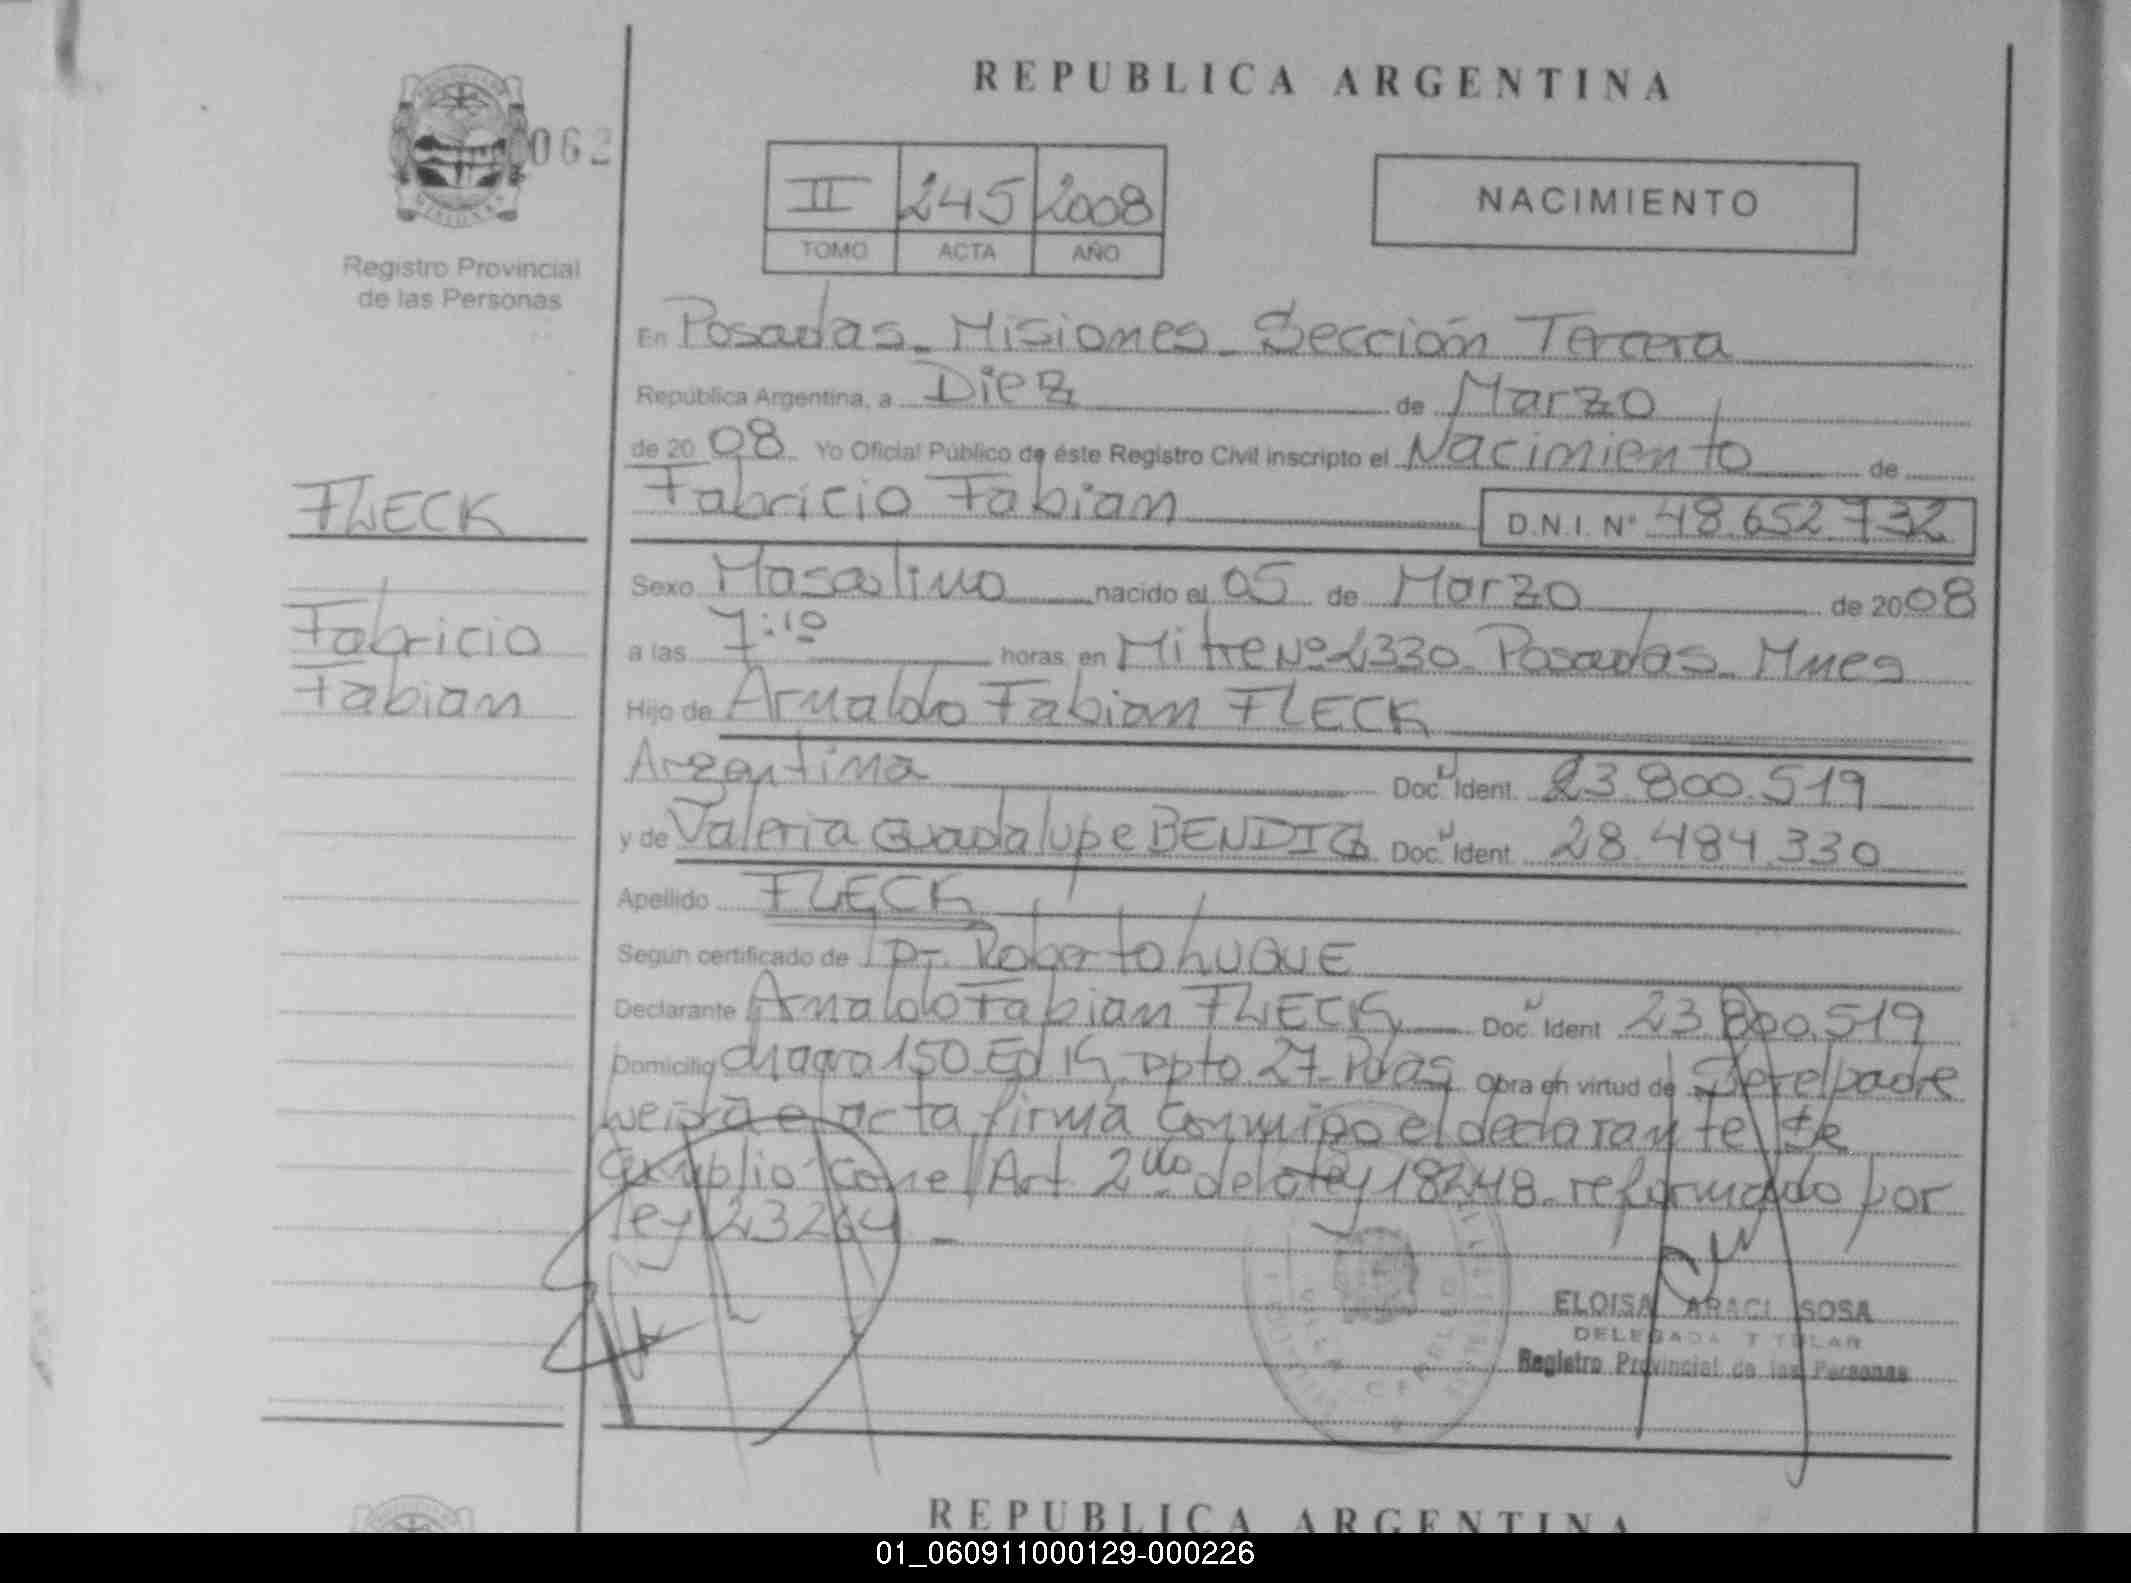 REPUBLICA ARGENTINA
062
II 245 2008
TOMO ACTA AÑO
NACIMIENTO
Registro Provincial
de las Personas
En Posadas - Misiones - Sección Tercera
República Argentina, a Diez de Marzo
de 20 08 Yo Oficial Público de éste Registro Civil inscripto el Nacimiento de
Fabricio Fabian D.N.I. Nº 48.652.732
FLECK
Fabricio
Fabian
Sexo Masculino nacido el 05 de Marzo de 20 08
a las 7:10 horas en Mitre Nº 2330 - Posadas - Mnes
Hijo de Arnaldo Fabian FLECK
Argentina Doc. Ident. 23.800.519
y de Valeria Guadalupe BENDIG Doc. Ident. 28.484.330
Apellido FLECK
Según certificado de Dr. Roberto LUQUE
Declarante Arnaldo Fabian FLECK Doc. Ident. 23.800.519
Domicilio chacra 150 - Ed dpto 27 - Pdas Obra en virtud de Ser el padre
leida el acta firma conmigo el declarante Se
cumplio con el Art 2do de la ley 18248 - reformado por
ley 23264 -
ELOISA ARACI SOSA
DELEGADA TITULAR
Registro Provincial de las Personas
REPUBLICA ARGENTINA
01_060911000129-000226